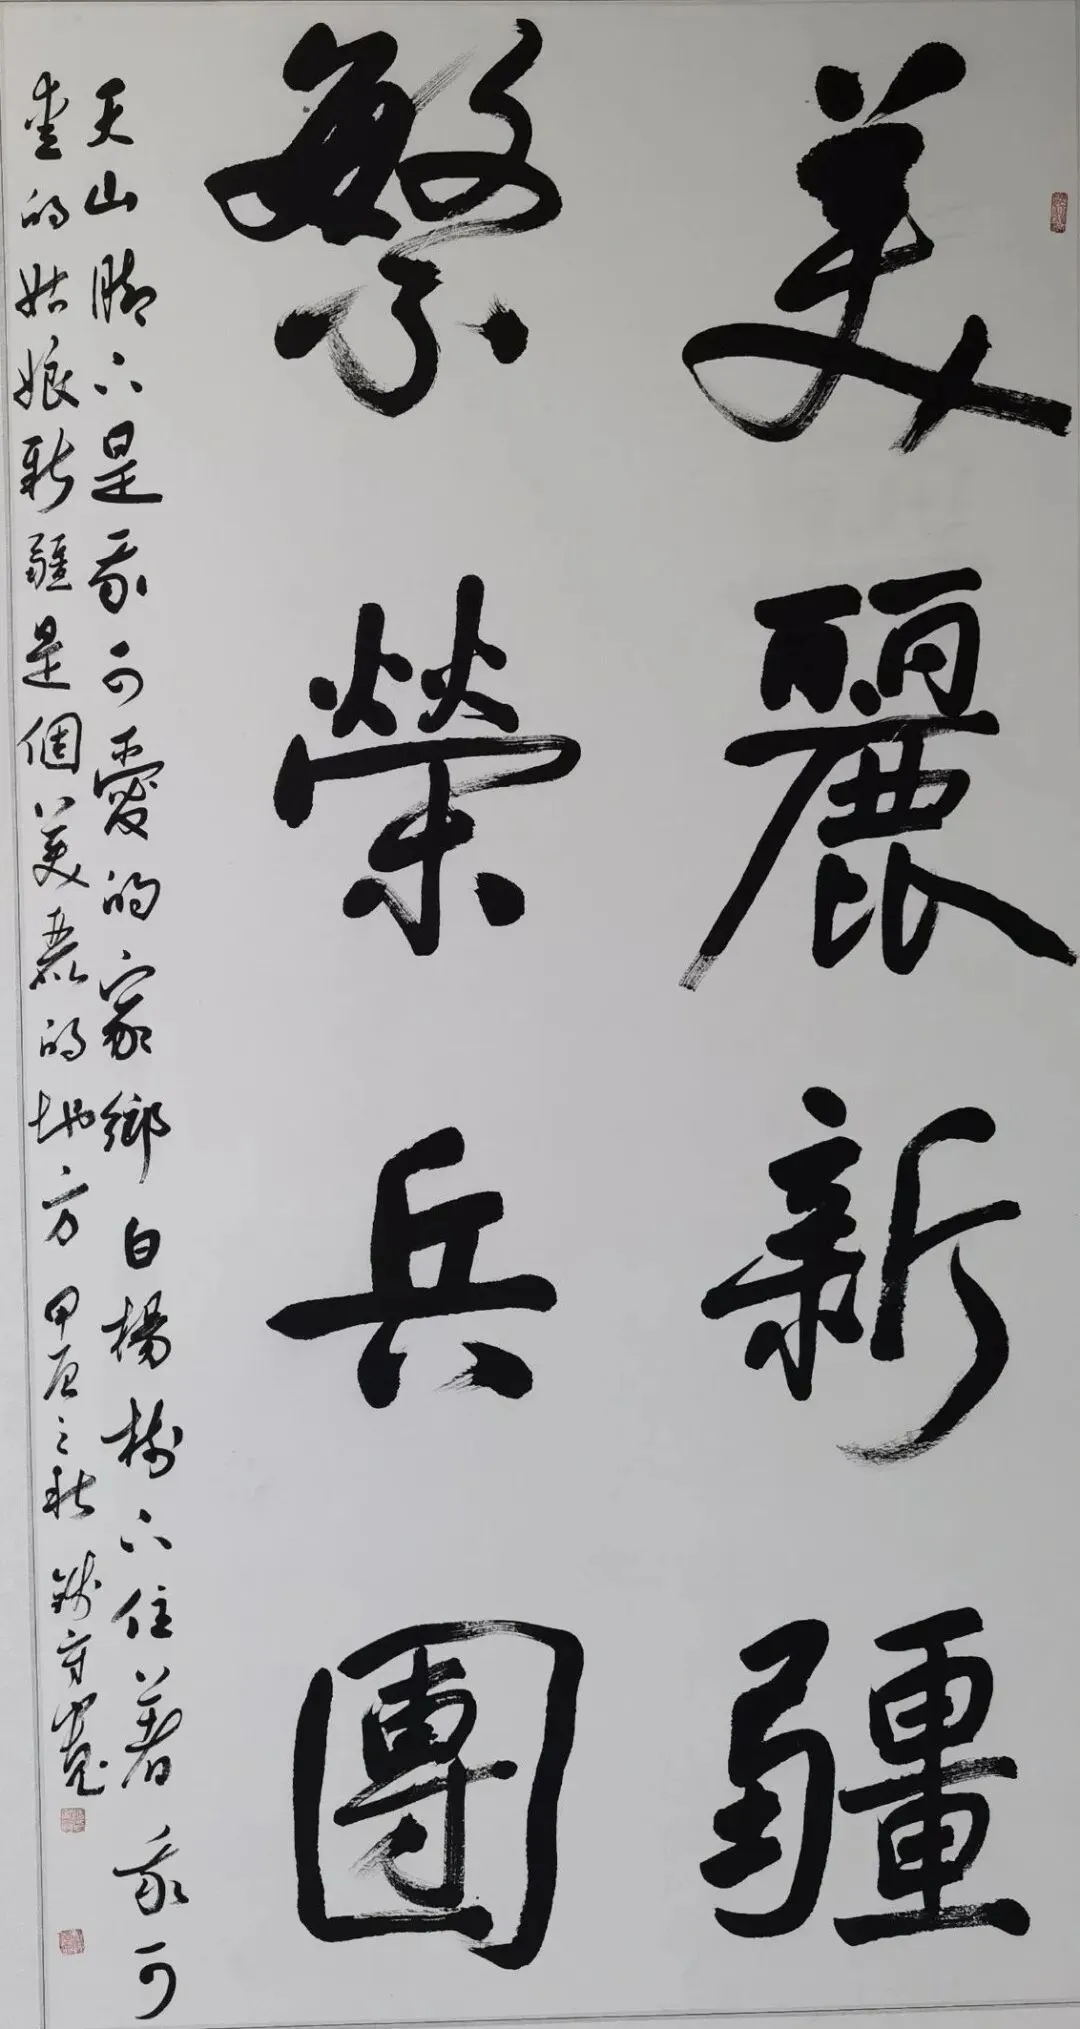 美麗新疆
繁榮兵團
天山脚下是我可愛的家鄉白楊樹下住着我可
愛的姑娘新疆是個美麗的地方甲辰之秋